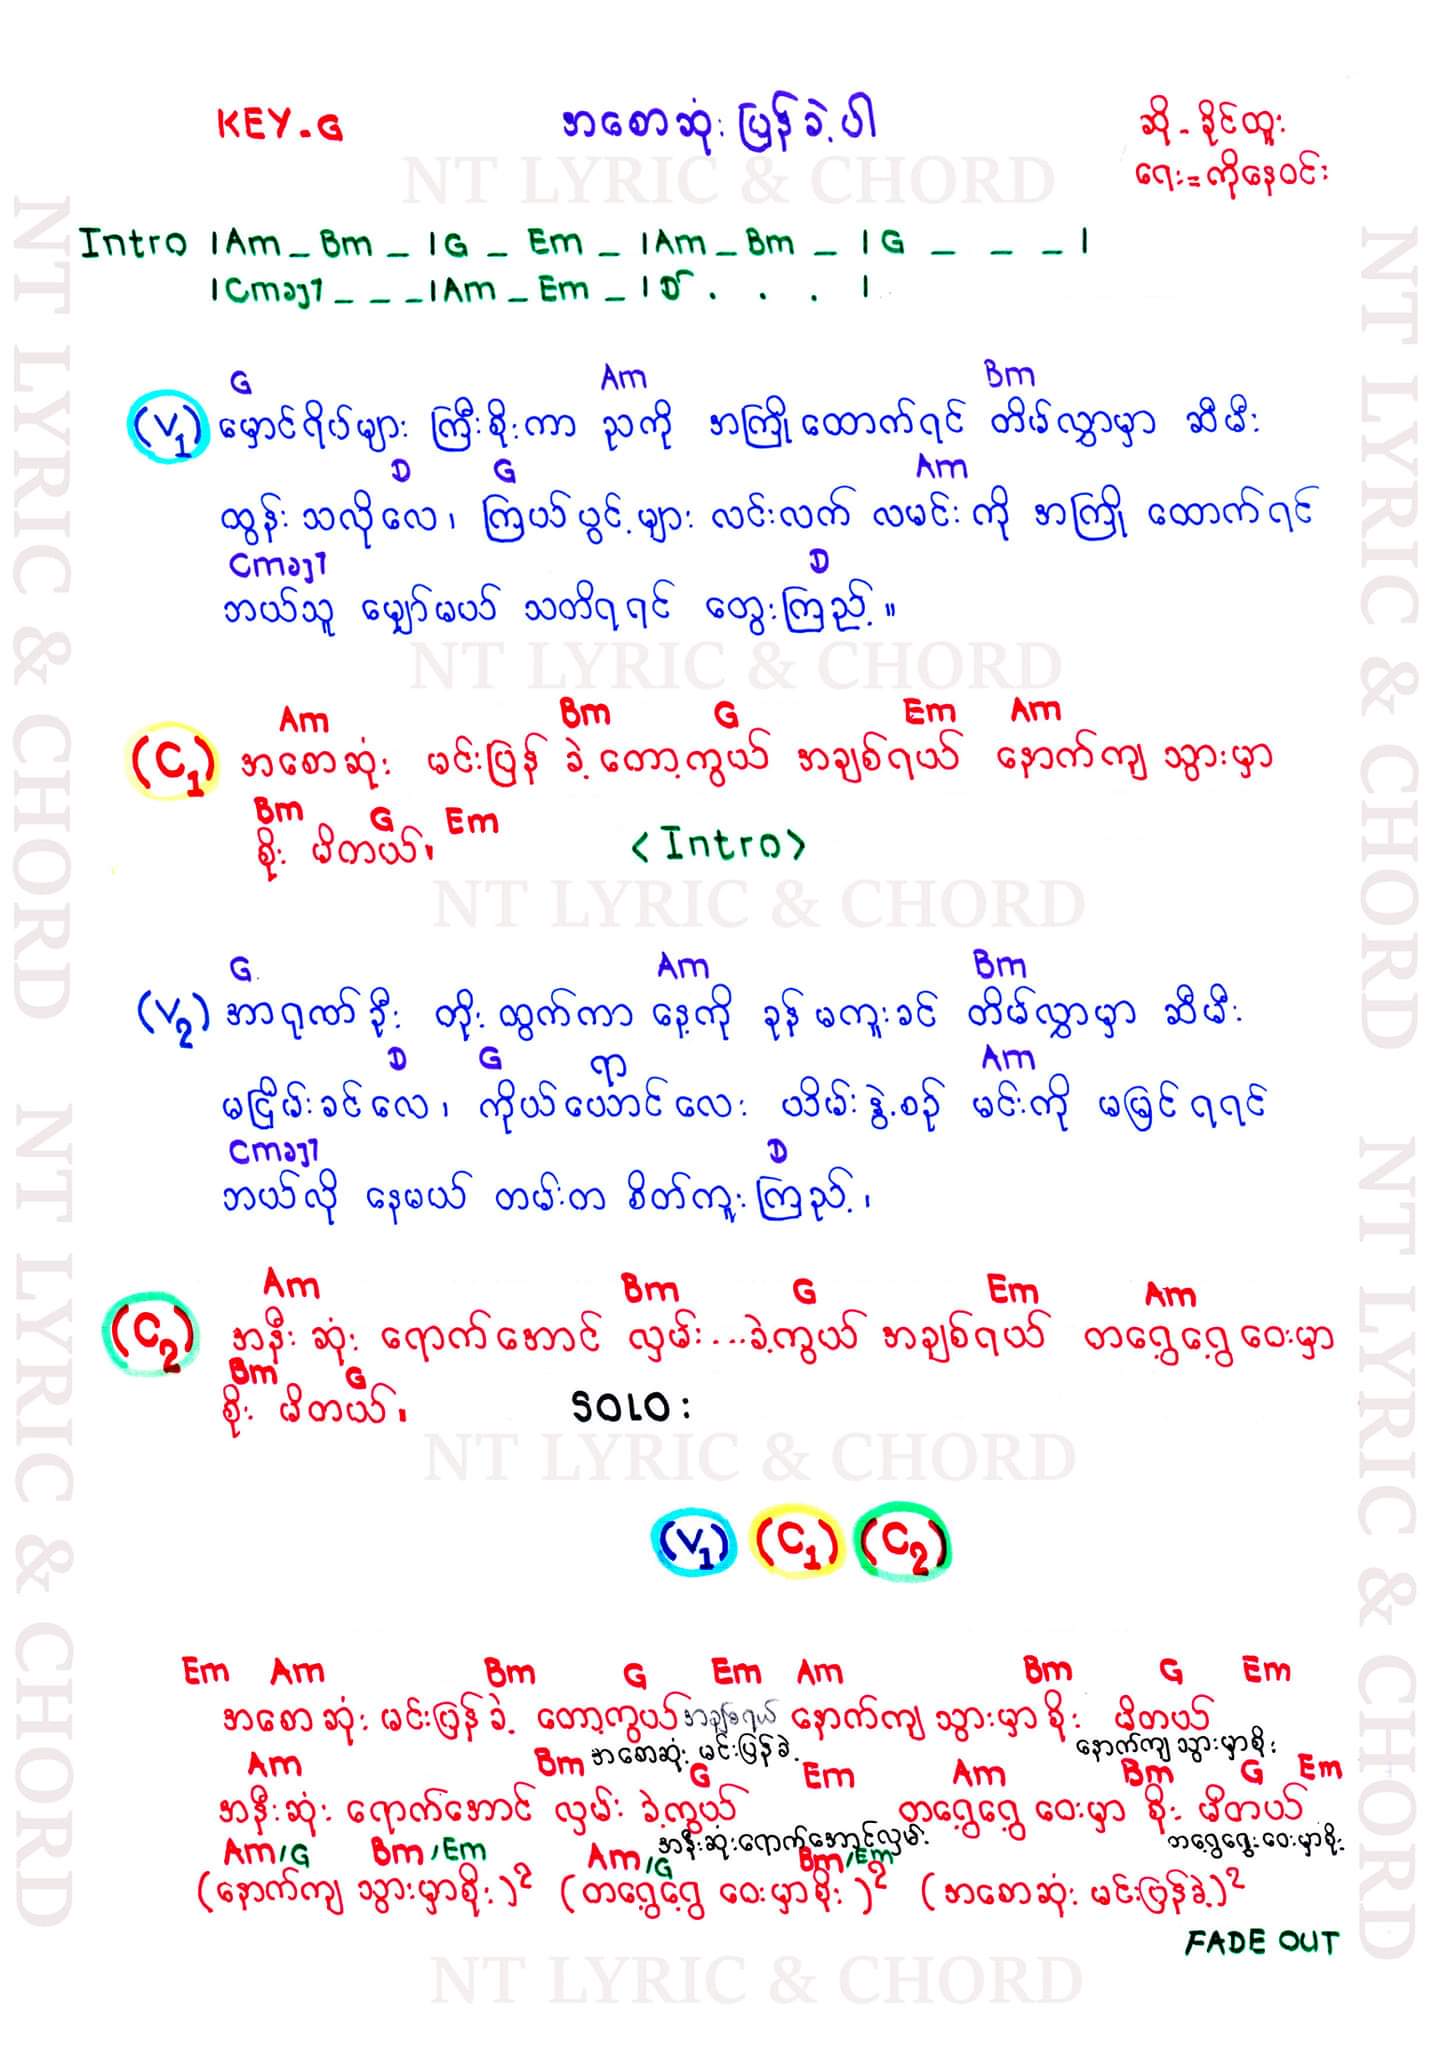 KEY-G အစောဆုံးပြန်ခဲ့ပါ ဆို - ခိုင်ထူး
ရေး = ကိုနေဝင်း
NT LYRIC & CHORD
Intro |Am _ Bm _ |G _ Em _ |Am _ Bm _ |G _ _ _ |
|Cmaj7 _ _ _ |Am _ Em _ |D . . . |
G Am Bm
(V1) မှောင်ရိပ်များ ကြီးစိုးကာ ညကို အကြိုထောက်ရင် တိမ်လွှာမှာ ဆီမီး
D G Am
ထွန်းသလိုလေ၊ ကြယ်ပွင့်များ လင်းလက် လမင်းကို အကြို ထောက်ရင်
Cmaj7 D
ဘယ်သူ မျှော်မယ် သတိရရင် တွေးကြည့်။
NT LYRIC & CHORD
Am Bm G Em Am
(C1) အစောဆုံး မင်းပြန် ခဲ့တော့ကွယ် အချစ်ရယ် နောက်ကျ သွားမှာ
Bm G Em
စိုး မိတယ်။ <Intro>
NT LYRIC & CHORD
G Am Bm
(V2) အာရုဏ်ဦး တိုးထွက်ကာ နေ့ကို ခုန်မကူးခင် တိမ်လွှာမှာ ဆီမီး
D G ရာ Am
မငြိမ်းခင်လေ၊ ကိုယ်ယောင်လေး ပသိမ်းနွဲ့စဉ် မင်းကို မမြင်ရရင်
Cmaj7 D
ဘယ်လို နေမယ် တမ်းတ စိတ်ကူးကြည့်၊
Am Bm G Em Am
(C2) အနီးဆုံး ရောက်အောင် လှမ်း...ခဲ့ကွယ် အချစ်ရယ် တရွေ့ရွေ့ ဝေးမှာ
Bm G
စိုး မိတယ်။ SOLO:
NT LYRIC & CHORD
(V1) (C1) (C2)
Em Am Bm G Em Am Bm G Em
အစောဆုံး မင်းပြန်ခဲ့ တော့ကွယ် အချစ်ရယ် နောက်ကျ သွားမှာစိုး မိတယ်
အစောဆုံး မင်းပြန်ခဲ့ နောက်ကျသွားမှာစိုး
Am Bm G Em Am Bm G Em
အနီးဆုံး ရောက်အောင် လှမ်း ခဲ့ကွယ် တရွေ့ရွေ့ ဝေးမှာ စိုး မိတယ်
အနီးဆုံးရောက်အောင်လှမ်း တရွေ့ရွေ့ဝေးမှာစိုး
Am/G Bm/Em Am/G Bm/Em
(နောက်ကျ သွားမှာစိုး)2 (တရွေ့ရွေ့ ဝေးမှာစိုး)2 (အစောဆုံး မင်းပြန်ခဲ့)2
FADE OUT
NT LYRIC & CHORD
NT LYRIC & CHORD
NT LYRIC & CHORD
NT LYRIC & CHORD
NT LYRIC & CHORD